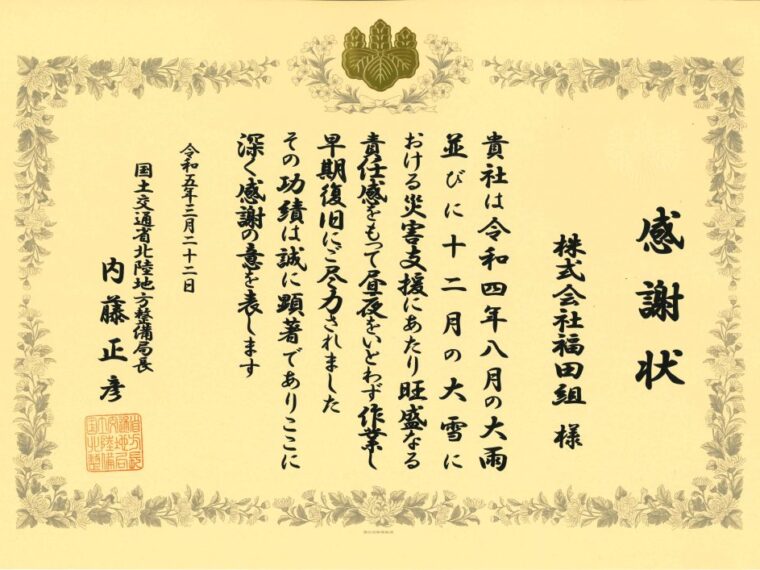 感謝状
株式会社福田組 様
貴社は令和四年八月の大雨
並びに十二月の大雪に
おける災害支援にあたり旺盛なる
責任感をもって昼夜をいとわず作業し
早期復旧にご尽力されました
その功績は誠に顕著でありここに
深く感謝の意を表します
令和五年三月二十二日
国土交通省北陸地方整備局長
内藤正彦